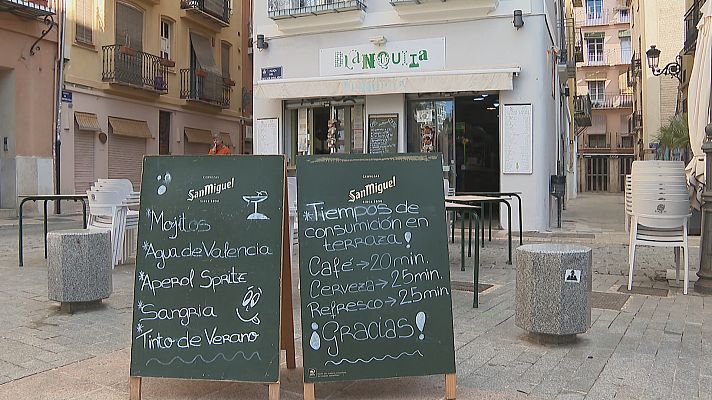 BLANQUITA
CERVEZAS
SanMiguel
SINCE 1890
*Mojitos
*Agua de Valencia
*Aperol Spritz
*Sangria
*Tinto de Verano
CERVEZAS
SanMiguel
SINCE 1890
*Tiempos de
consumición en
terraza!
Café→20min.
Cerveza→25min.
Refresco→25min.
¡Gracias!